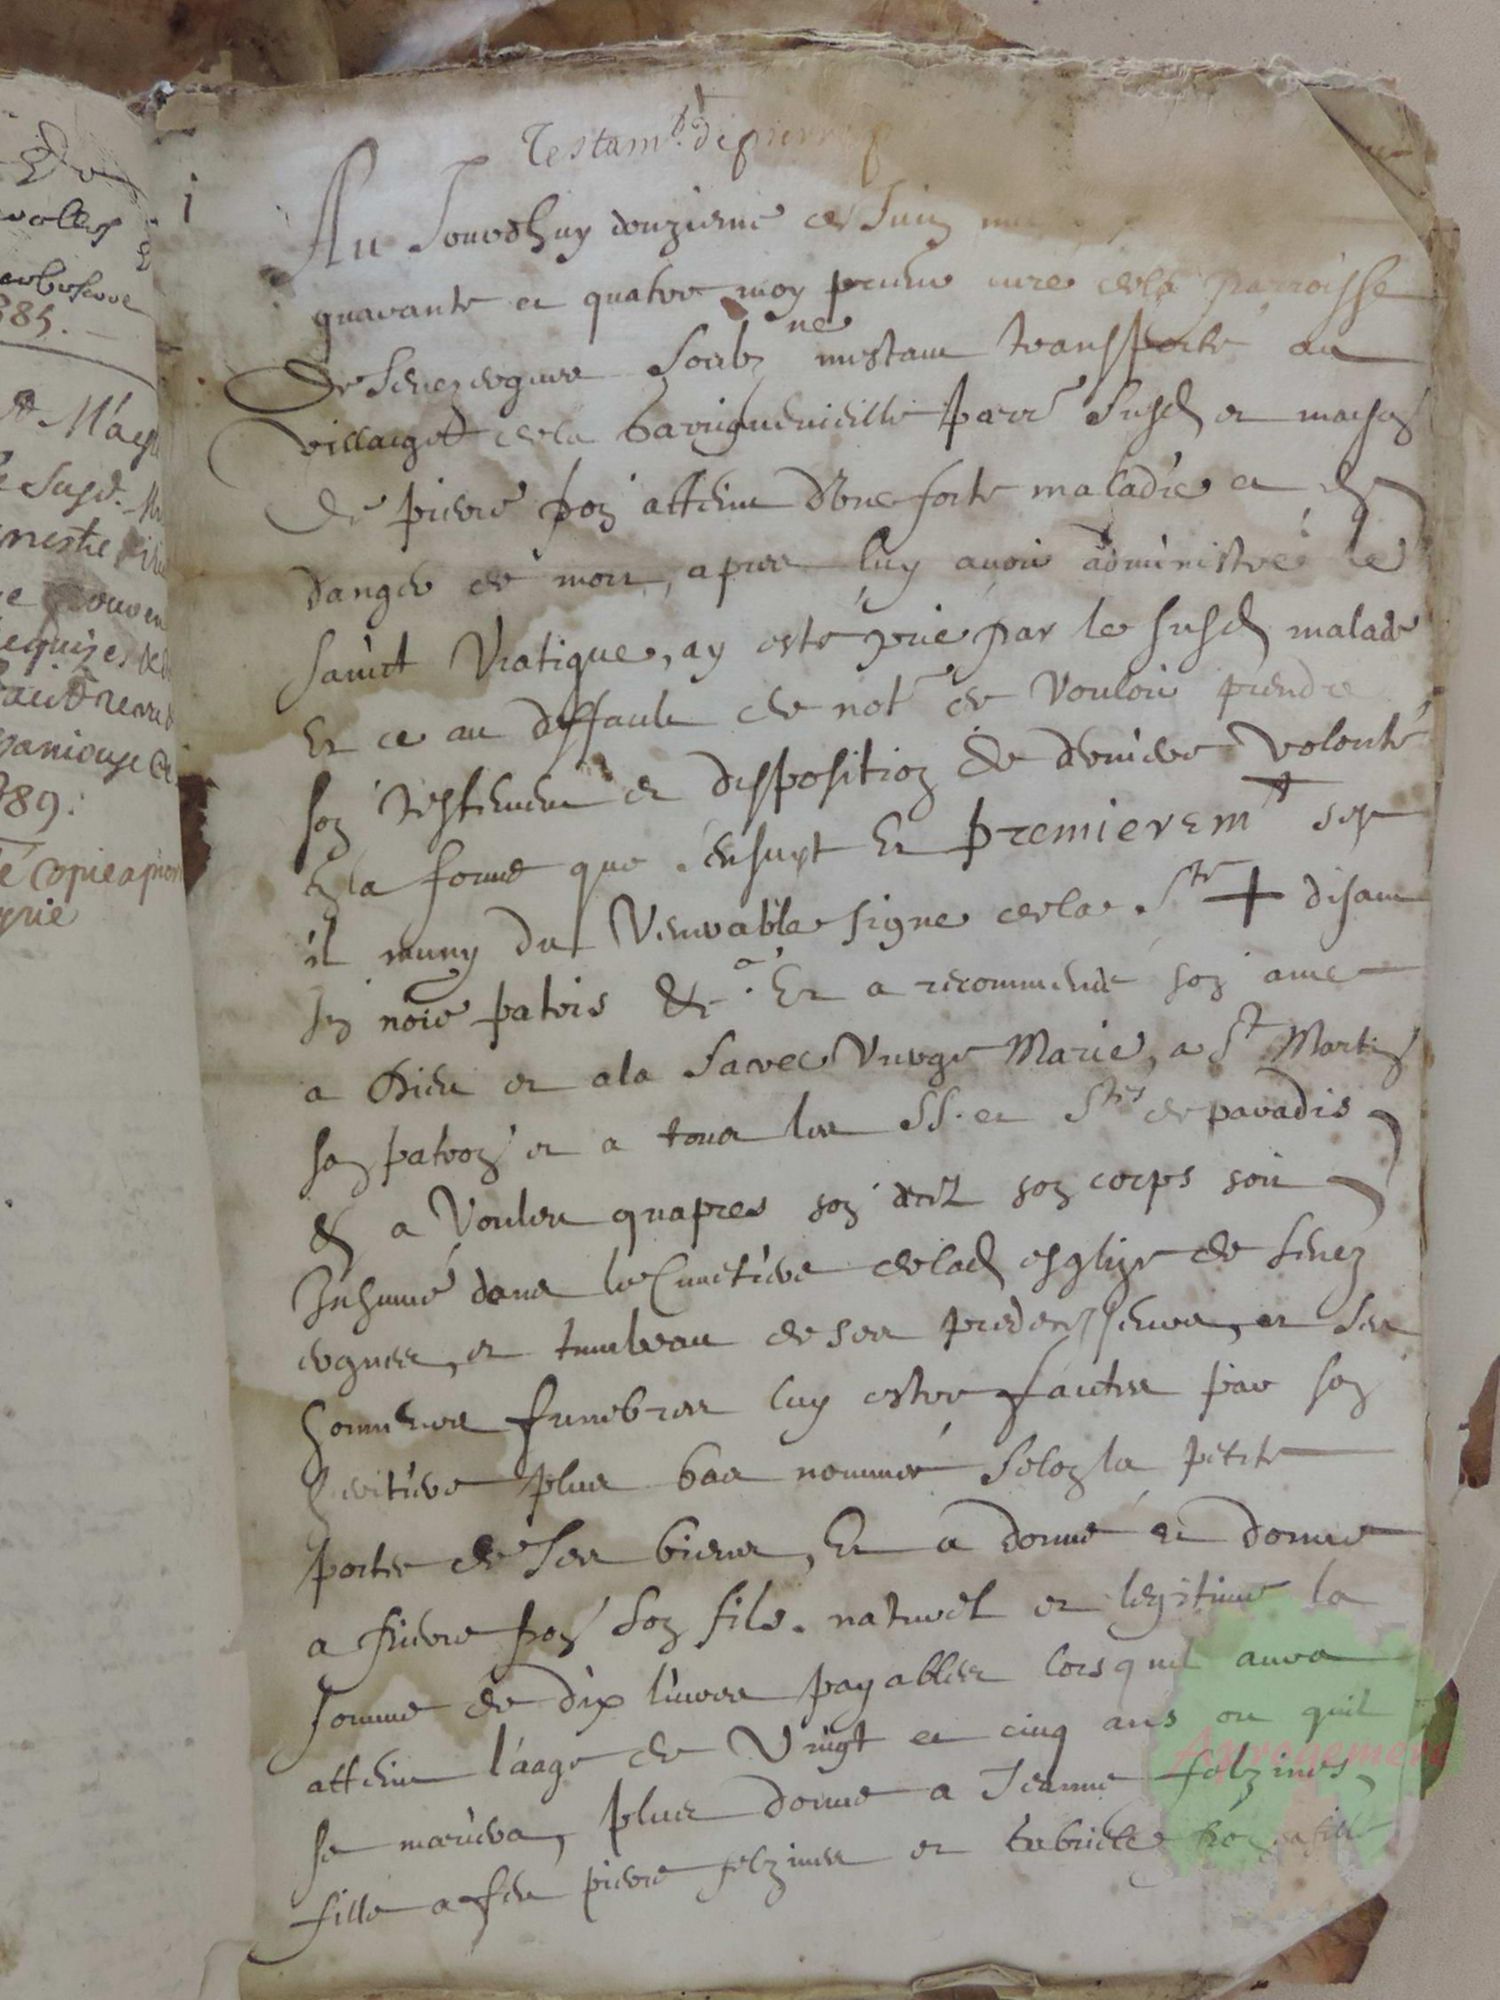 Testamt de pierre
i
Au Jourdhuy douziesme de Juin
quarante et quatre moy prieur curé de la parroisse
De Senezergues soubzne mestant transporté au
villaige de la parre susd et mayson
De pierre foy atteint d'une forte maladie et en
danger de mort, apres luy avoir administré le
sainct Viatique, ay esté prié par le susd malade
Et ce au deffault de notre de vouloir prendre
son testement et disposition de derniere volonté
En la forme que sensuyt Et premieremt sest
il muny du Venerable signe de la Ste + disant
In noie patris &c. Et a recommendé son ame
a Dieu et a la sacree Vierge Marie, a St Martin
son patron et a tous les SS. et Stes de paradis
Et a vouleu quapres son decez son corps soit
Inhumé dans le cimetiere de lad esglize de Senez
ergues, et tumbeau de ses predecesseurs, et ses
honneurs funebres luy estre faictes par son
heritiere plus bas nommée selon la petite
portee de ses biens, Et a donné et donne
a pierre foy son fils naturel et legitime la
somme de dix livres payables lors quil aura
atteint l'aage de Vingt et cinq ans ou quil
se mariera, plus donne a Jeanne felzines
fille a feu pierre felzines et Gabrielle foy sa fille
volles
385.
Susd.
Requizes
789.
Copie
Aprogemere